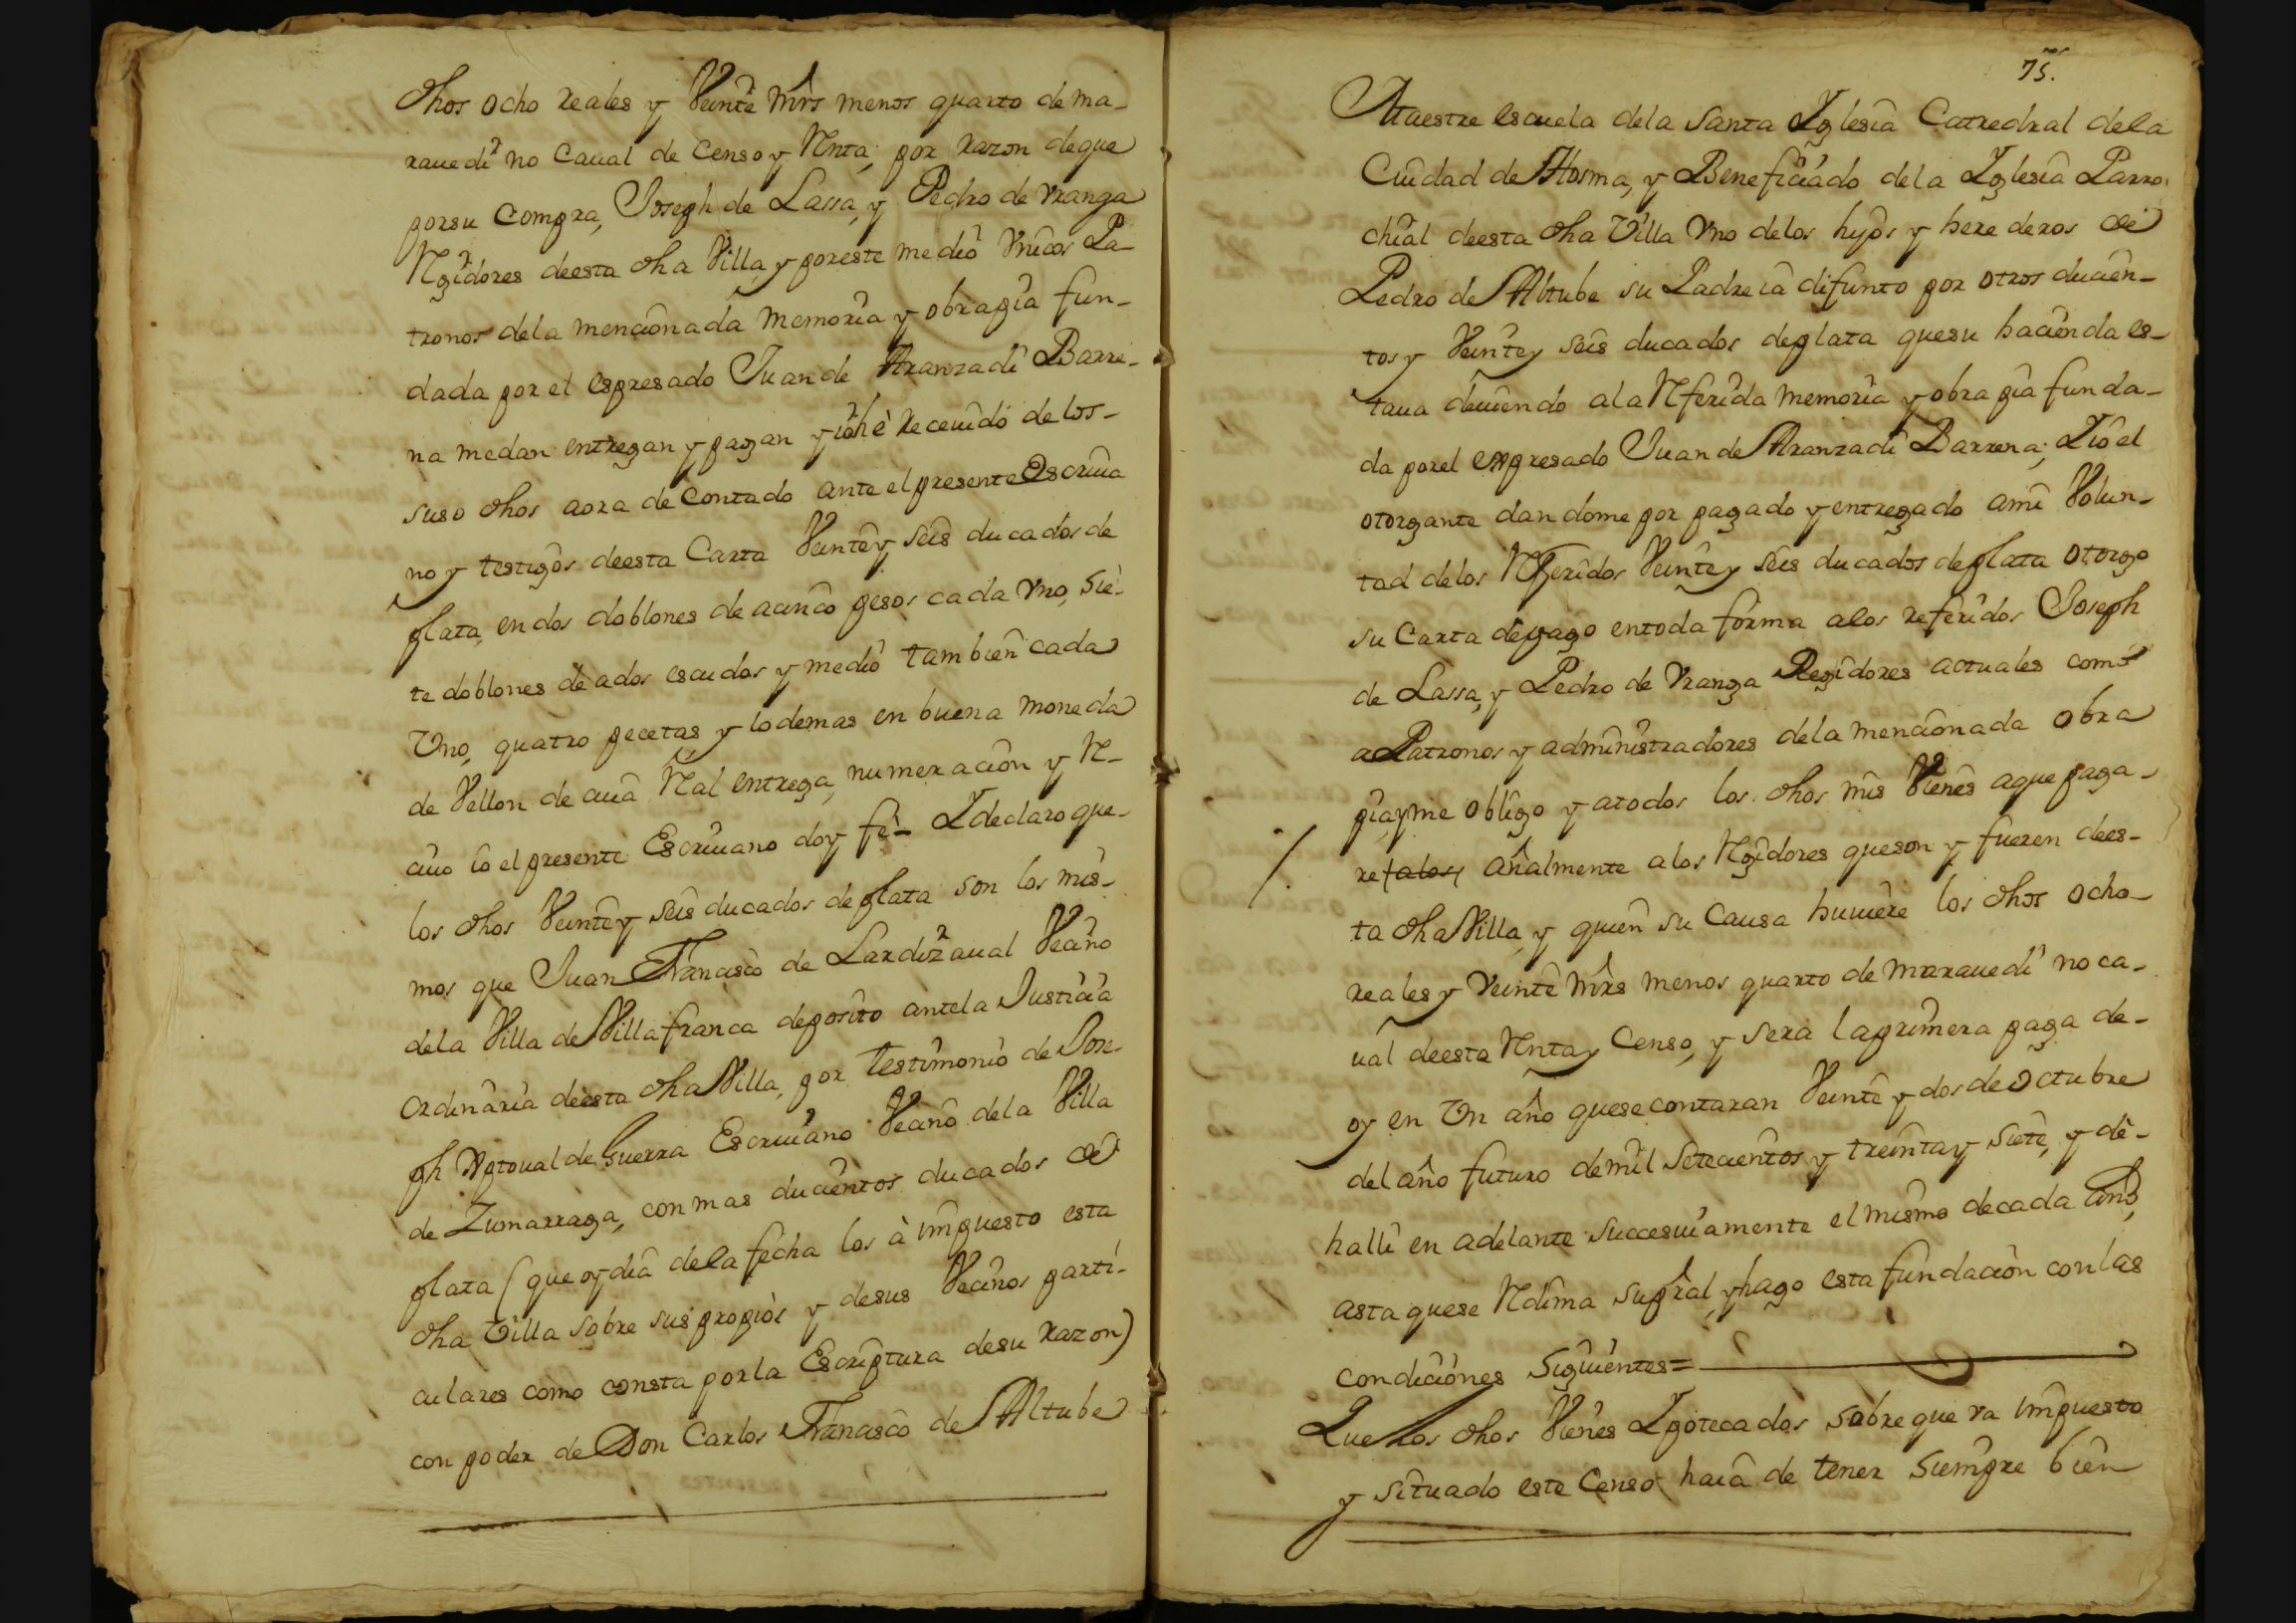 dhos ocho reales y Veinte mrs menos quarto de ma-
rauedi no caual de Censo y Renta; por razon deque
porsu compra, Joseph de Lassa, y Pedro de Vranga
Regidores deesta dha Villa, y poreste medio Vnicos Pa-
tronos dela mencionada memoria y obrapia fun-
dada por el espresado Juan de Aranzadi Barre-
na medan entregan y pagan y io he Receuido de los-
suso dhos aora de Contado ante el presente Escriua
no y testigos deesta Carta Veinte y seis ducados de
plata, en dos doblones de acinco pesos cada vno, Sie-
te doblones de ados escudos y medio tambien cada
Vno, quatro pecetas, y lodemas en buena moneda
de Vellon de cuia Real entrega, numeracion y Re-
ciuo io el presente Escriuano doy fe- Y declaro que-
los dhos Veinte y seis ducados de plata son los mis-
mos que Juan Francisco de Lardizaual Vecino
dela Villa de Villafranca deposito antela Justicia
ordinaria deesta dha Villa, por testimonio de Jose-
ph Yptoual de Guerra Escriuano Vecino dela Villa
de Zumarraga, con mas ducientos ducados de
plata (que oydia dela fecha los à impuesto esta
dha Villa sobre sus propios y desus Vecinos parti-
culares como consta por la Escriptura desu razon)
con poder de Don Carlos Francisco de Altube
75.
Maestre escuela dela Santa Yglesia Catredral dela
Ciudad de Hosma, y Beneficiado dela Yglesia Parro-
chial deesta dha Villa Vno delos hijos y herederos de
Pedro de Altube su Padre ia difunto por otros ducien-
tos y Veinte y seis ducados deplata quesu hacienda es-
taua deuiendo ala Referida memoria y obra pia funda-
da porel expresado Juan de Aranzadi Barrena; Y io el
otorgante dandome por pagado y entregado ami Volun-
tad delos Referidos Veinte y seis ducados deplata otorgo
su Carta de pago entoda forma alos referidos Joseph
de Lassa, y Pedro de Vranga Regidores actuales como
a Patronos y administradores dela mencionada obra
pia, y me obligo y atodos los dhos mis Vienes aque paga-
re alos, añalmente alos Regidores queson y fueren dees-
ta dha Villa, y quien su Causa huuiere los dhos ocho
reales y veinte mrs menos quarto de marauedi no ca-
ual deesta Renta y Censo, y sera laprimera paga de-
oy en Vn año quese contaran Veinte y dos de Octubre
del año futuro demil Setecientos y treinta y siete, y de-
halli en adelante succesiuamente el mismo decada año,
asta quese Redima supral, y hago esta fundacion conlas
condiciones Siguientes=
Que los dhos Vienes Ypotecados sobre que va impuesto
y situado este Censo haia de tener Siempre bien